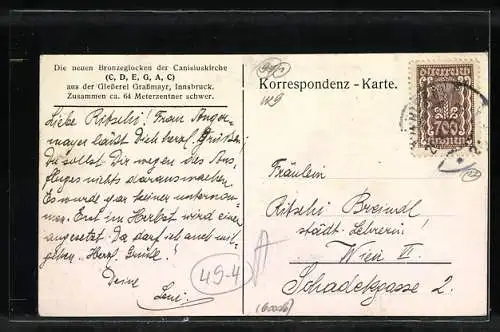 Die neuen Bronzeglocken der Canisiuskirche
(C, D, E, G, A, C)
aus der Gießerei Graßmayr, Innsbruck.
Zusammen ca. 64 Meterzentner schwer.
Korrespondenz - Karte.
W9
Österreich
700
Kronen
Liebe Ritschi! Frau Anger-
mayer läßt Dich herzl. Grüßen,
Du sollst Dir wegen des Aus-
fluges nichts daraus machen.
Es wurde gar keiner unternom-
men. Erst im Herbst wird einer
angesetzt. Da darf ich auch mit-
gehen. Herzl. Grüße!
Deine
Leni.
49-4
Fräulein
Ritschi Breindl
städt. Lehrerin
Wien VI.
Schadekgasse 2.